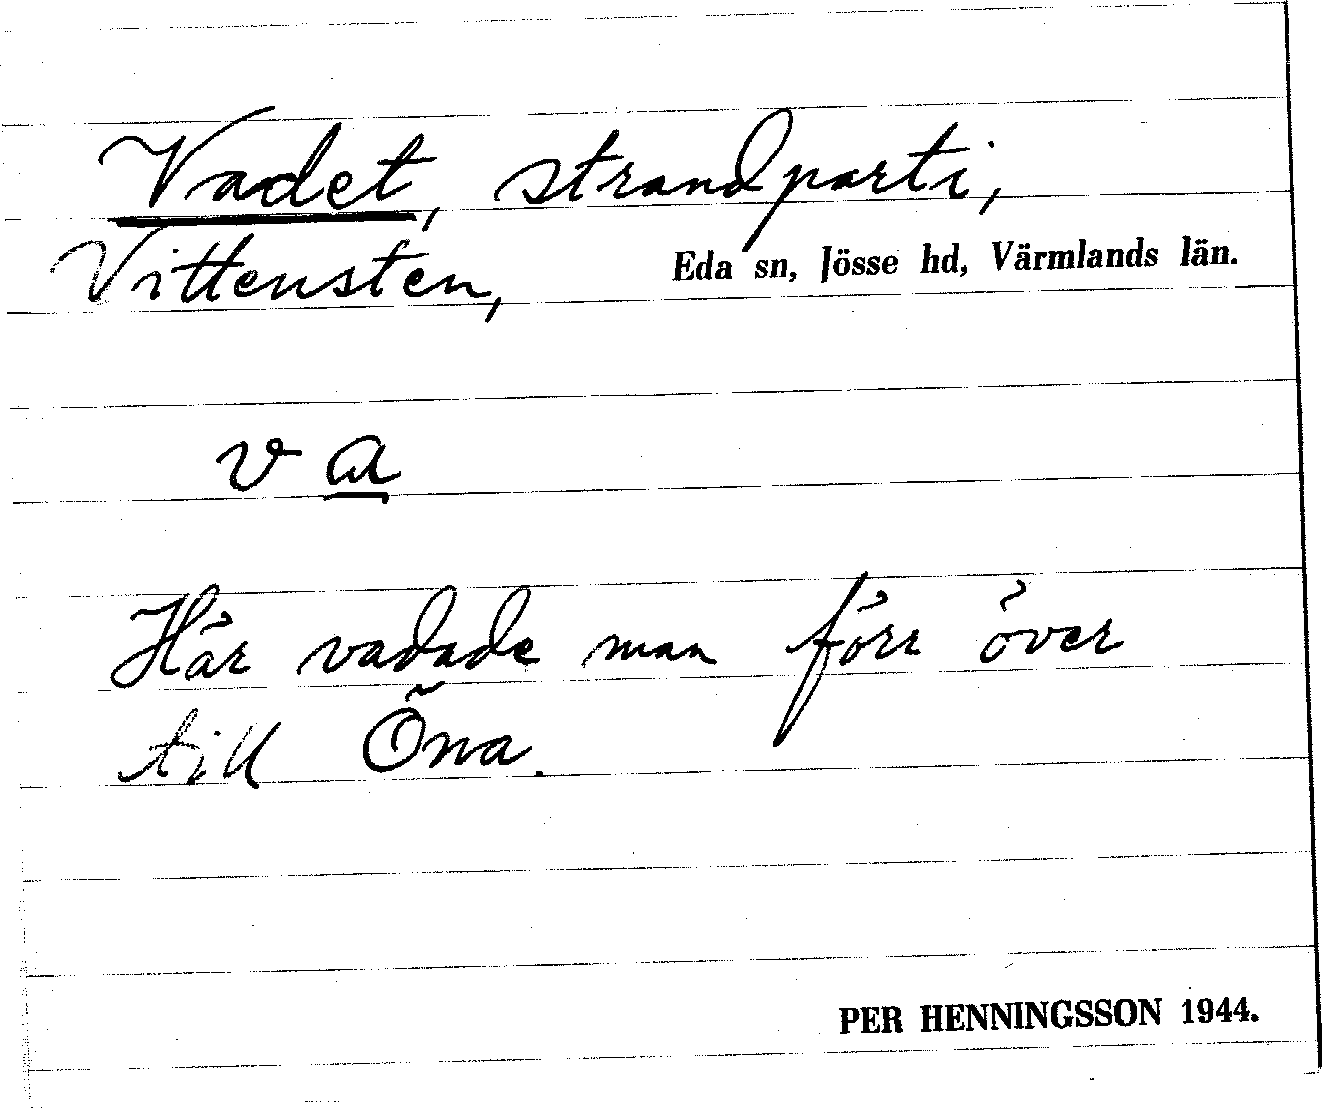 Vadet, strandparti,
Vittensten, Eda sn, Jösse hd, Värmlands län.
va
Här vadade man förr över
till Öna.
PER HENNINGSSON 1944.